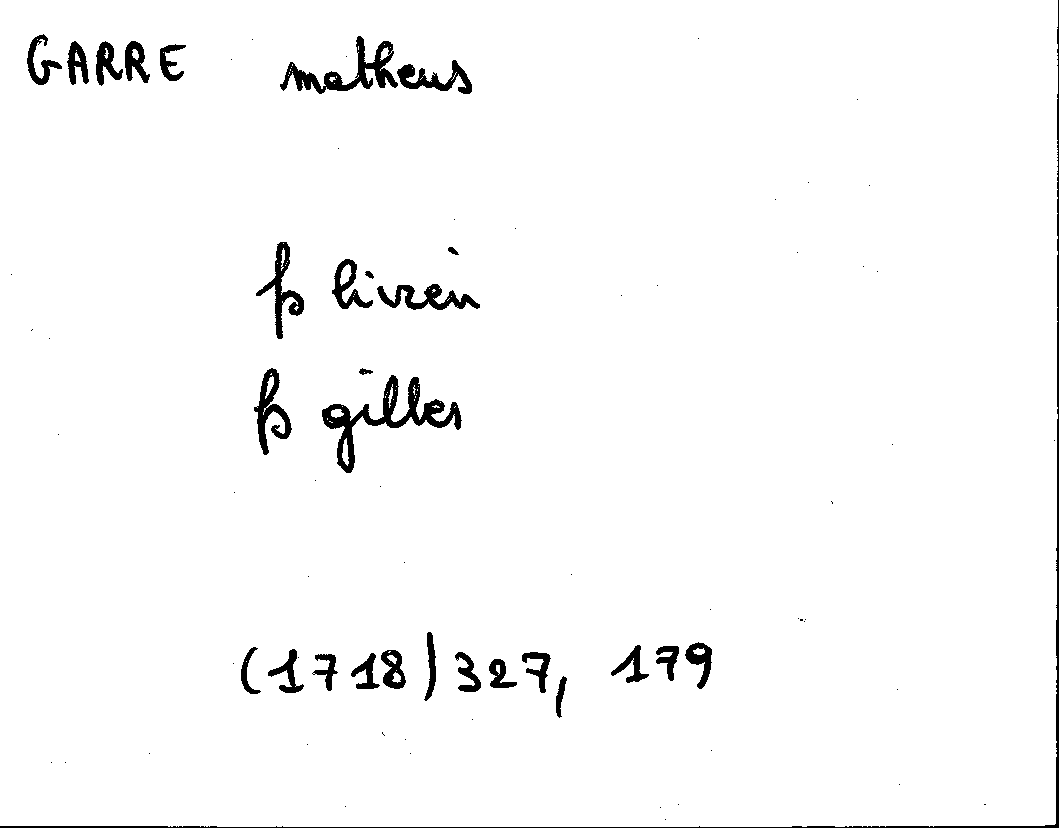 GARRE matheus
fs livien
fs gilles
(1718) 327, 179